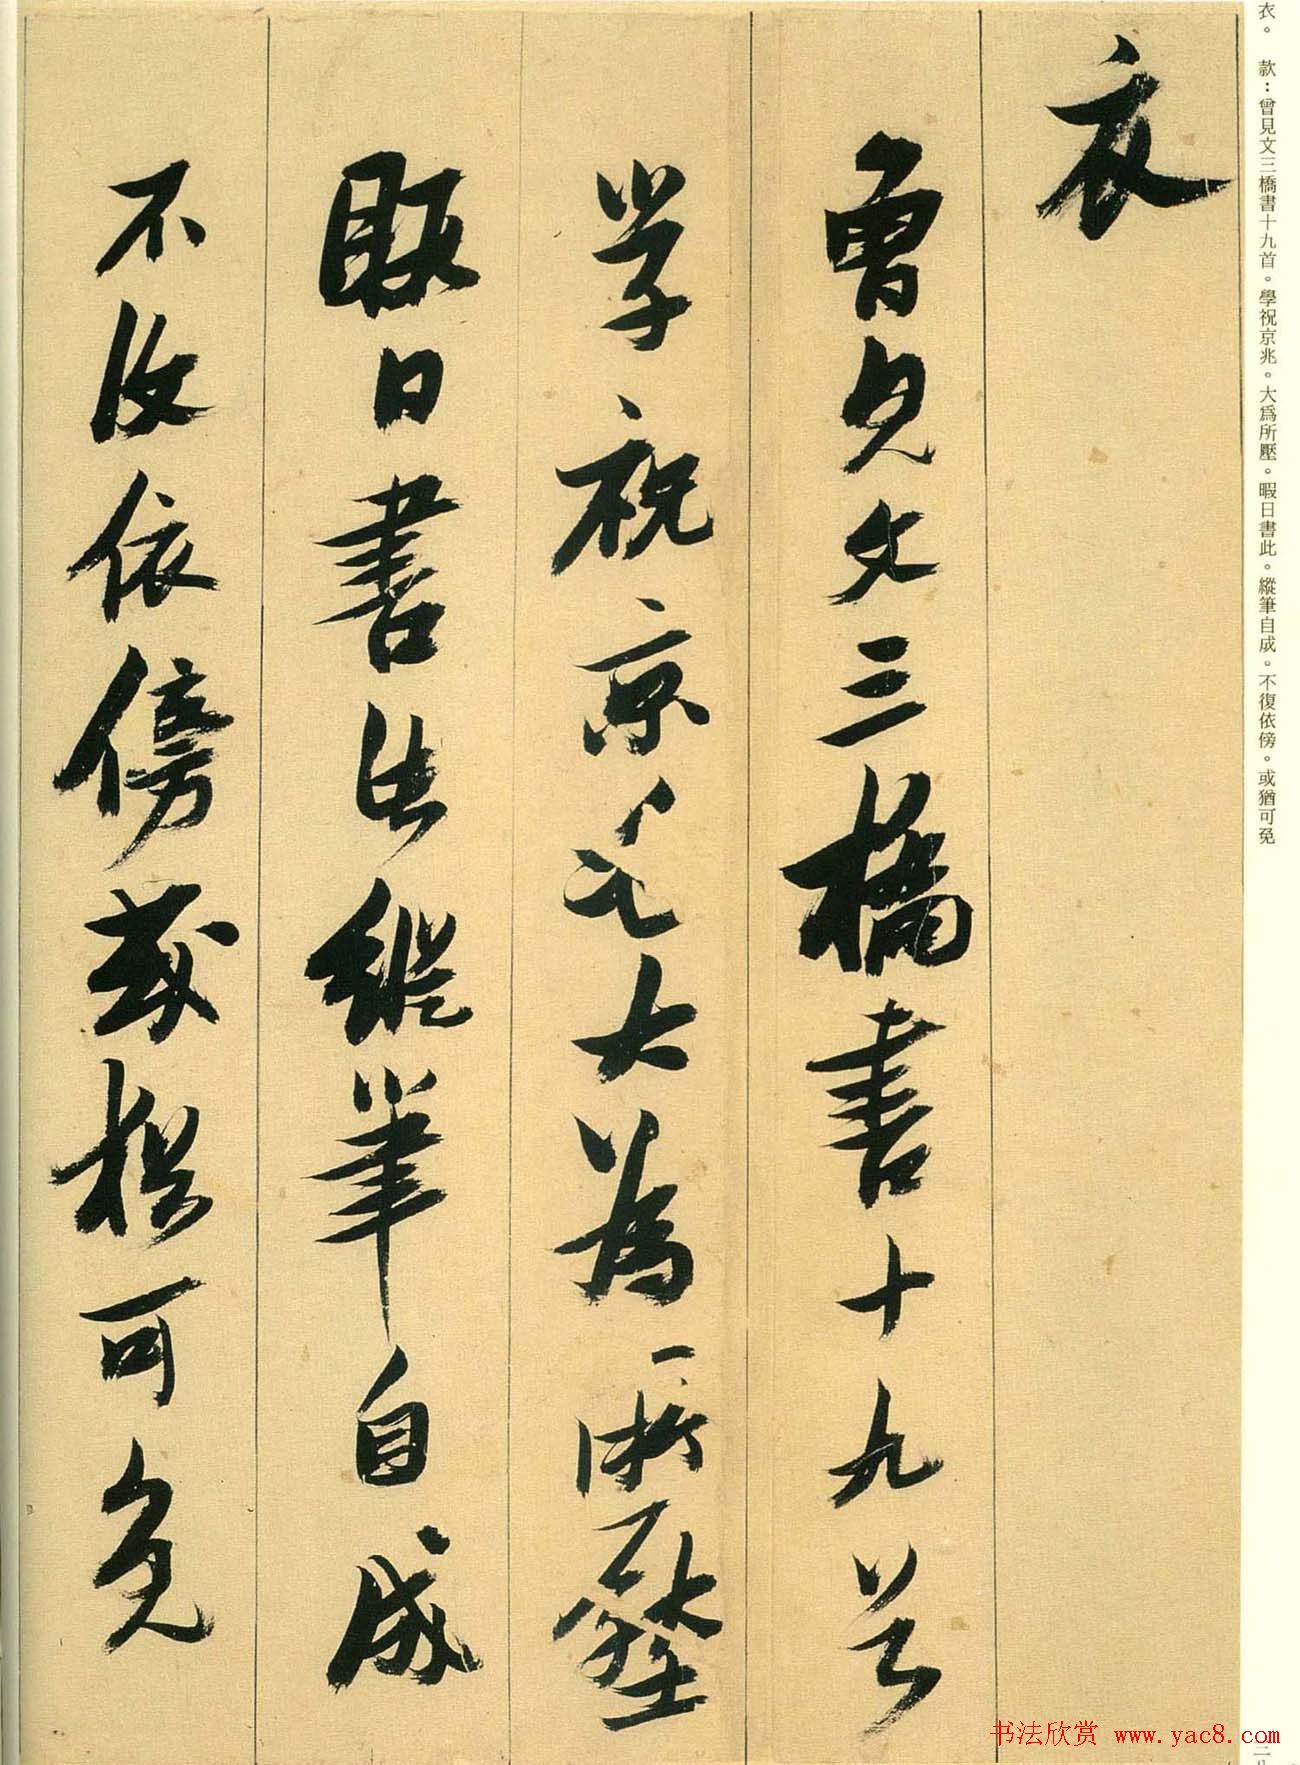 衣
曾見文三橋書十九首
學祝京兆大為所壓
暇日書此縱筆自成
不復依傍或猶可免
衣。　款：曾見文三橋書十九首。學祝京兆。大爲所壓。暇日書此。縱筆自成。不復依傍。或猶可免
书法欣赏 www.yac8.com